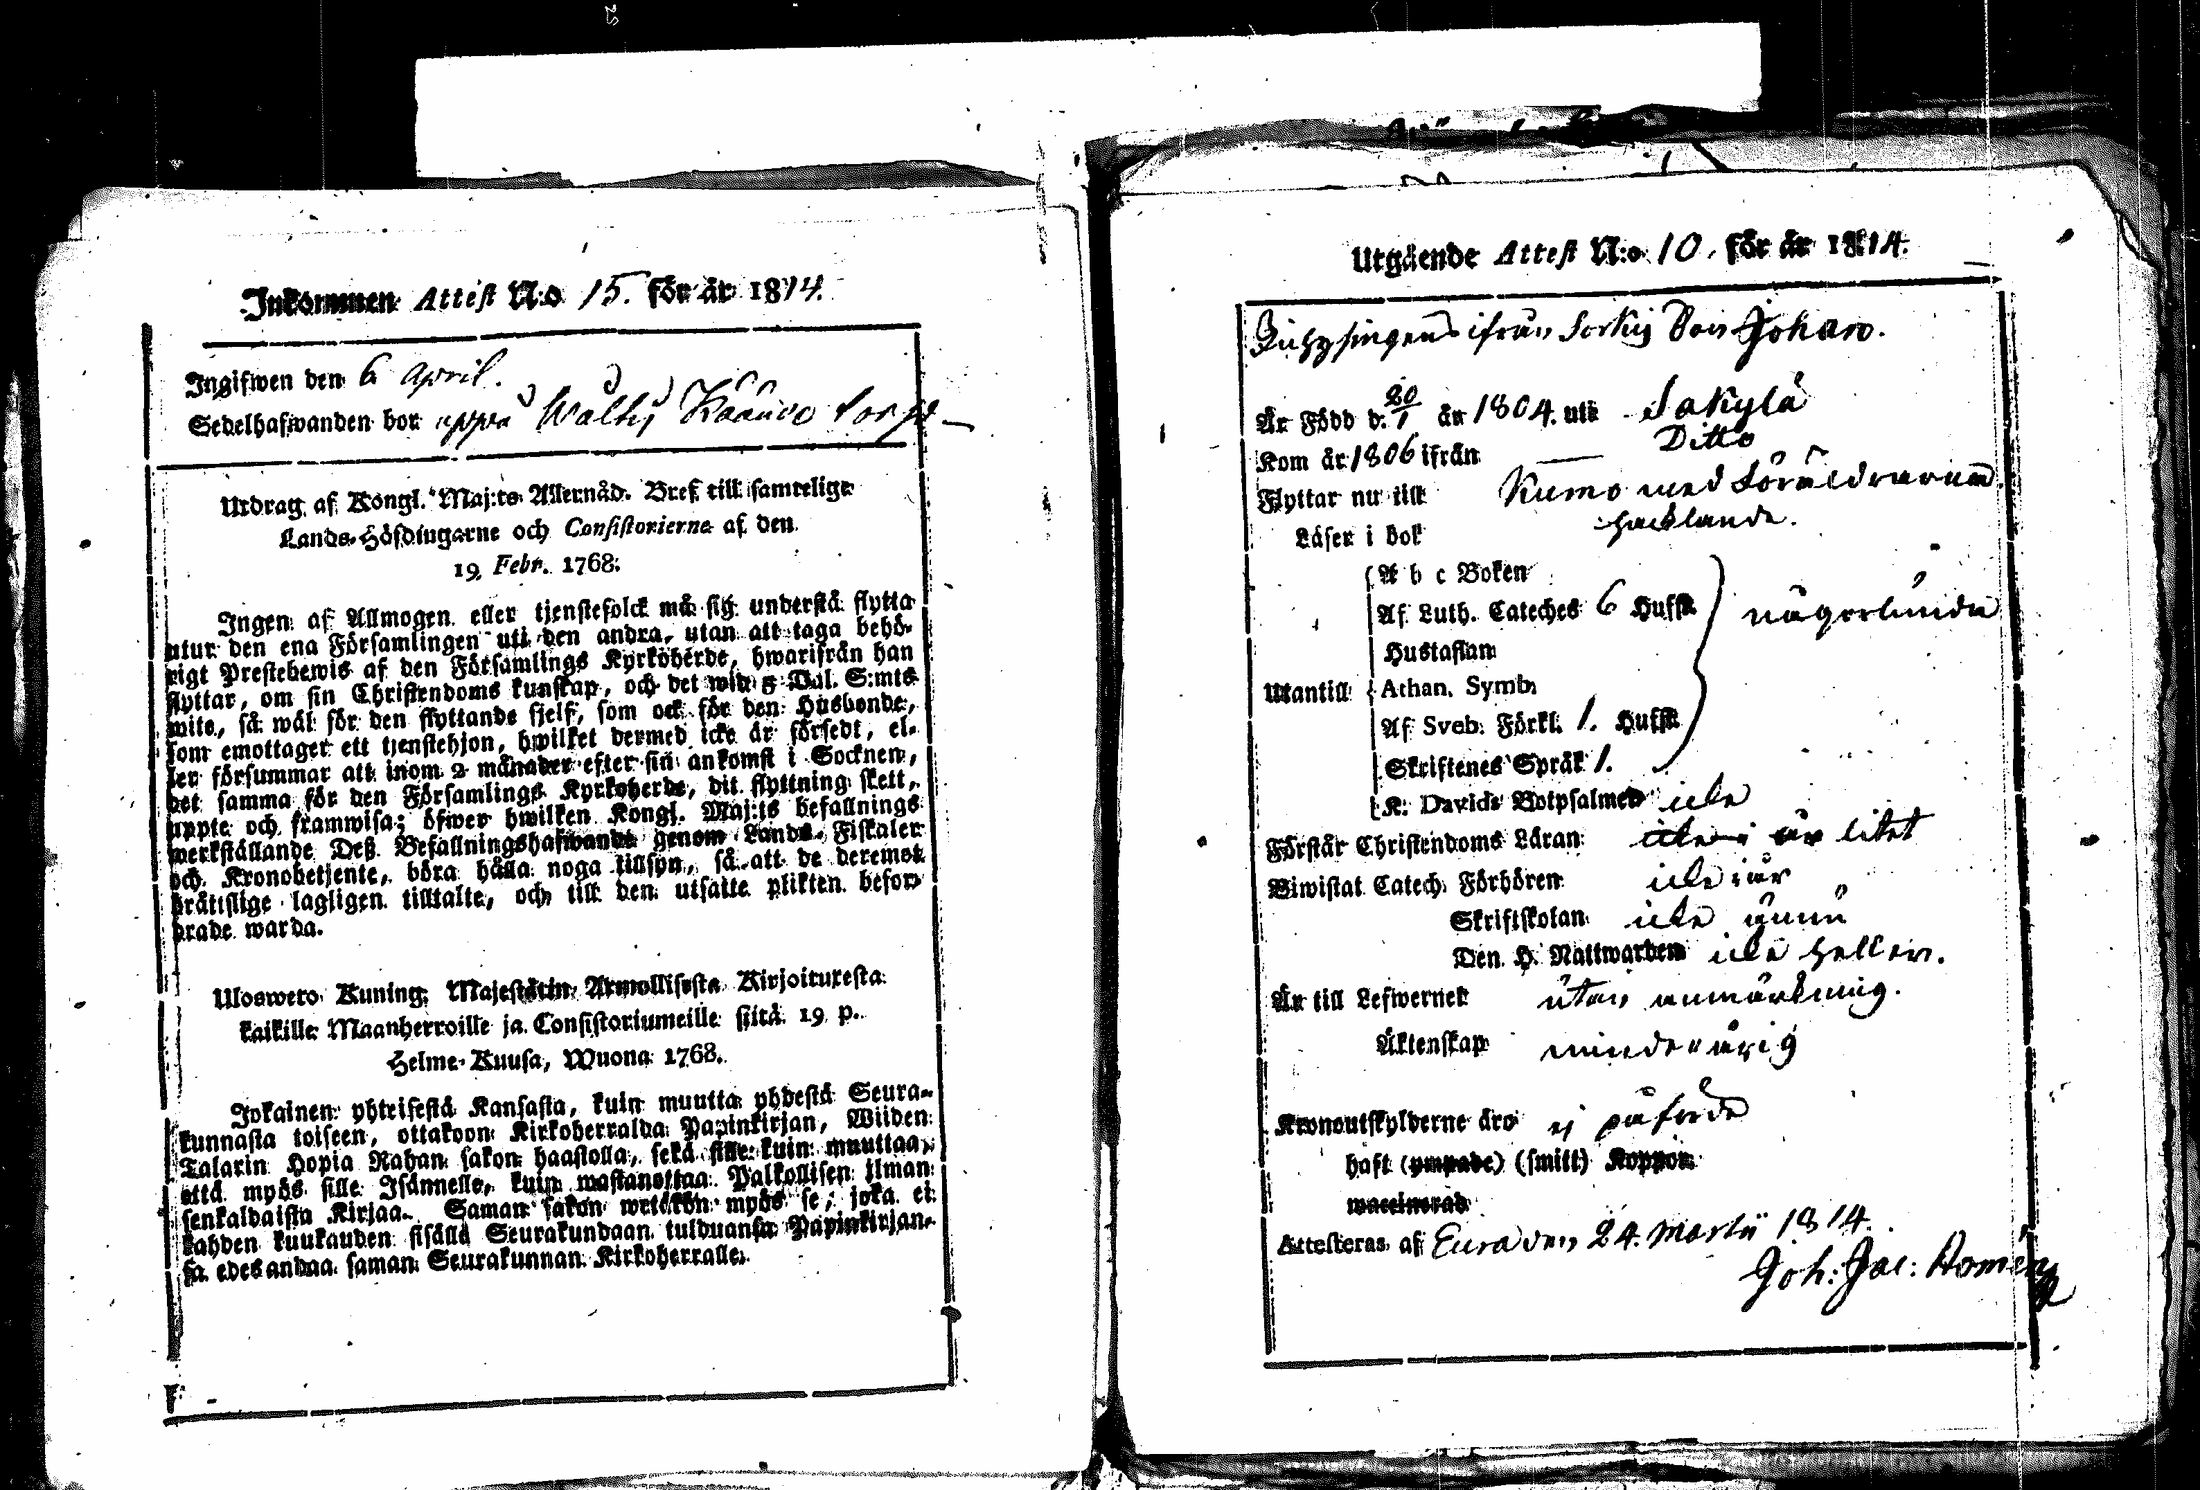 Inkommen Attest N:o 15. för år 1814.
Ingifwen den 6 April.
Sedelhafwanden bor uppå Waltij Kääuro torp
Utdrag af Kongl. Maj:ts Allernåd. Bref till samtelige
Lands-Höfdingarne och Consistorierne af den
19 Febr. 1768.
Ingen af Allmogen eller tjenstefolck må sig understå flytta
utur den ena Församlingen uti den andra, utan att taga behö-
rigt Prestebewis af den Församlings Kyrkoherde, hwarifrån han
flyttar, om sin Christendoms kunskap, och det wid 5 Dal. S:mts
wite, så wäl för den flyttande sjelf, som ock för den Husbonde,
som emottager ett tjenstehjon, hwilket dermed icke är försedt, el-
ler försummar att inom 2 månader efter sin ankomst i Socknen,
det samma för den Församlings Kyrkoherde, dit flyttning skett,
uppte och framwisa; öfwer hwilken Kongl. Maj:ts befallnings
werkställande Deß Befallningshafwande genom Lands-Fiskaler
och Kronobetjente, böra hålla noga tillsyn, så att de deremot
brättslige lagligen tilltalte, och till den utsatte plikten befor-
drade warda.
Uloswero Kuning. Majestätin Armollisesta Kirjoituresta
kaikille Maanherroille ja Consistoriumeille siitä 19 p.
Helme-Kuusa, Wuona 1768.
Jokainen yhteisestä Kansasta, kuin muutta yhdestä Seura-
kunnasta toiseen, ottakoon Kirkoherralda Papinkirjan, Wiiden
Talarin Hopia Rahan sakon haastolla, sekä sille kuin muuttaa,
että myös sille Isännelle, kuin wastanottaa Palkollisen ilman
senkaldaista Kirjaa. Saman sakon wetäkön myös se, joka ei
kahden kuukauden sisällä Seurakundaan tulduansa Papinkirjan-
sa edesandaa saman Seurakunnan Kirkoherralle.
Utgående Attest N:o 10. för år 1814.
ifrån Sorkis Johan.
Är Född d. 20/1 år 1804. uti Säkylä
Kom år 1806 ifrån — Ditto
Flyttar nu till Kumo med Föräldrarna
Läser i bok hacklande.
A b c Boken
Af Luth. Cateches 6 Hufst. någorlunda
Hustaflan
Utantill Athan. Symb.
Af Sveb. Förkl. 1. Hufst.
Skriftenes Språk 1.
K. Davids Botpsalmer icke
Förstår Christendoms Läran litet
Biwistat Catech. Förhören icke i år
Skriftskolan icke ännu
Den H. Nattwarden icke heller.
Är till Lefwernet utan anmärkning.
Äktenskap minderårig
Kronoutskylderne äro ej påförde
haft (ympade) (smitt) Koppor
waccinerad
Attesteras af Eura den 24. Martii 1814.
Joh: Jac: Homén